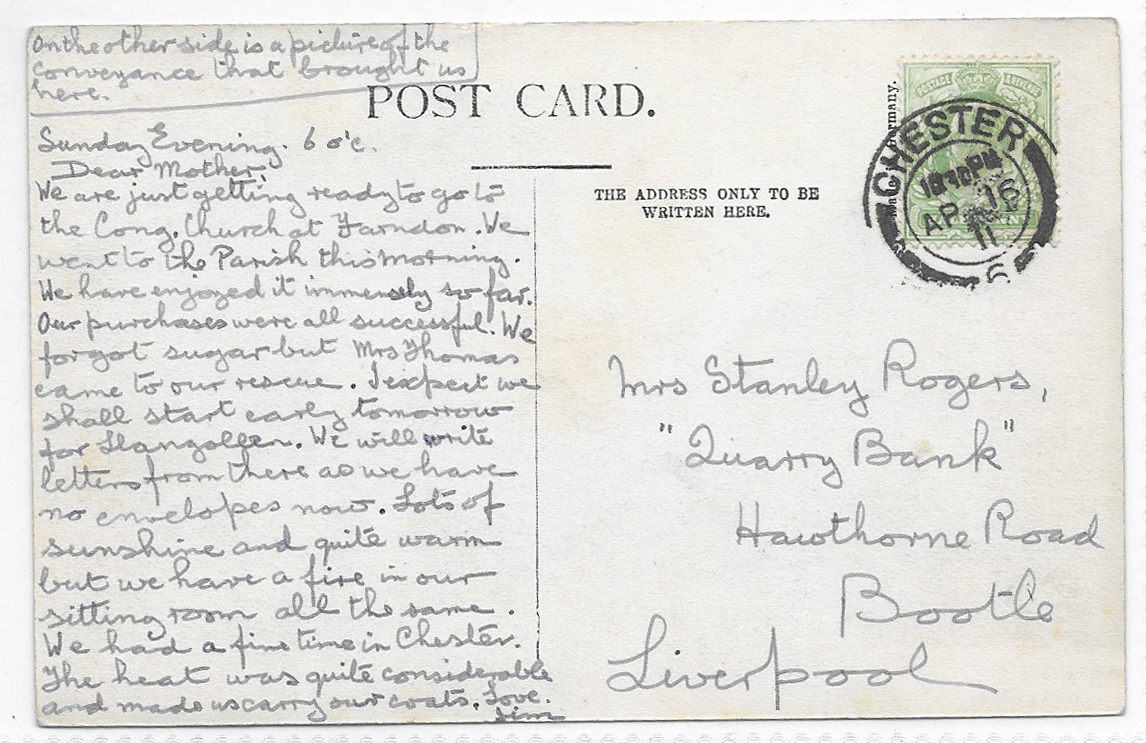 On the other side is a picture of the
conveyance that brought us
here.
POST CARD.
Sunday Evening. 6 o'c.
Dear Mother;
We are just getting ready to go to
the Cong. Church at Farndon. We
went to the Parish this morning.
We have enjoyed it immensely so far.
Our purchases were all successful. We
forgot sugar but Mrs Thomas
came to our rescue. I expect we
shall start early tomorrow
for Llangollen. We will write
letters from there as we have
no envelopes now. Lots of
sunshine and quite warm
but we have a fire in our
sitting room all the same.
We had a fine time in Chester.
The heat was quite considerable
and made us carry our coats. Love.
Jim
THE ADDRESS ONLY TO BE
WRITTEN HERE.
Germany.
POSTAGE & REVENUE
CHESTER
PM
AP 16
11
Mrs Stanley Rogers,
"Quarry Bank"
Hawthorne Road
Bootle
Liverpool